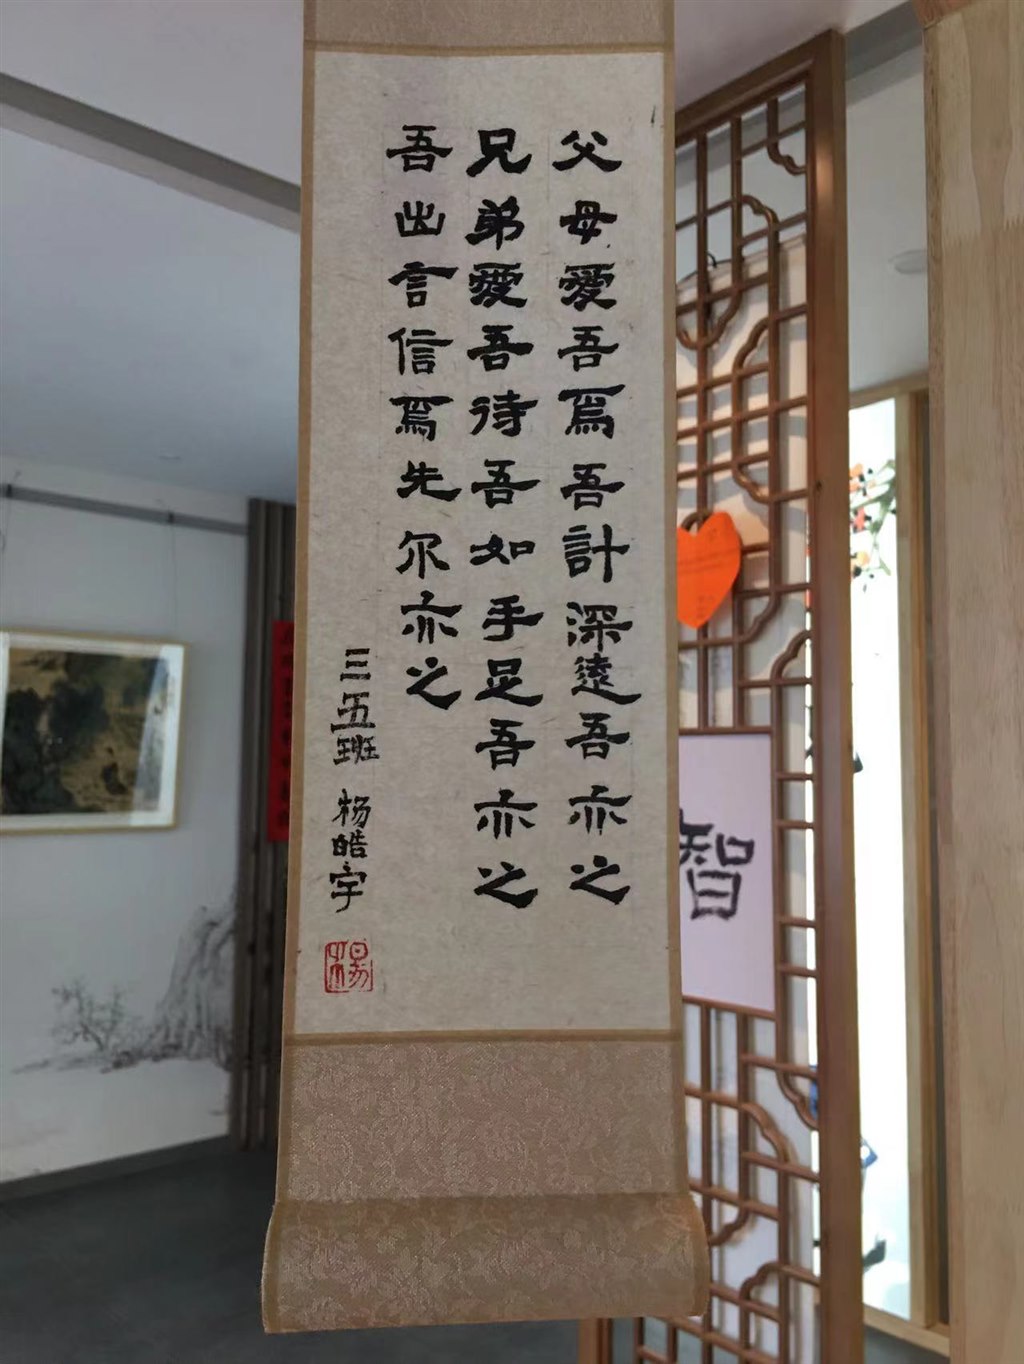 父母愛吾爲吾計深遠吾亦之
兄弟愛吾待吾如手足吾亦之
吾出言信爲先尔亦之
三五班 杨皓宇
楊
智